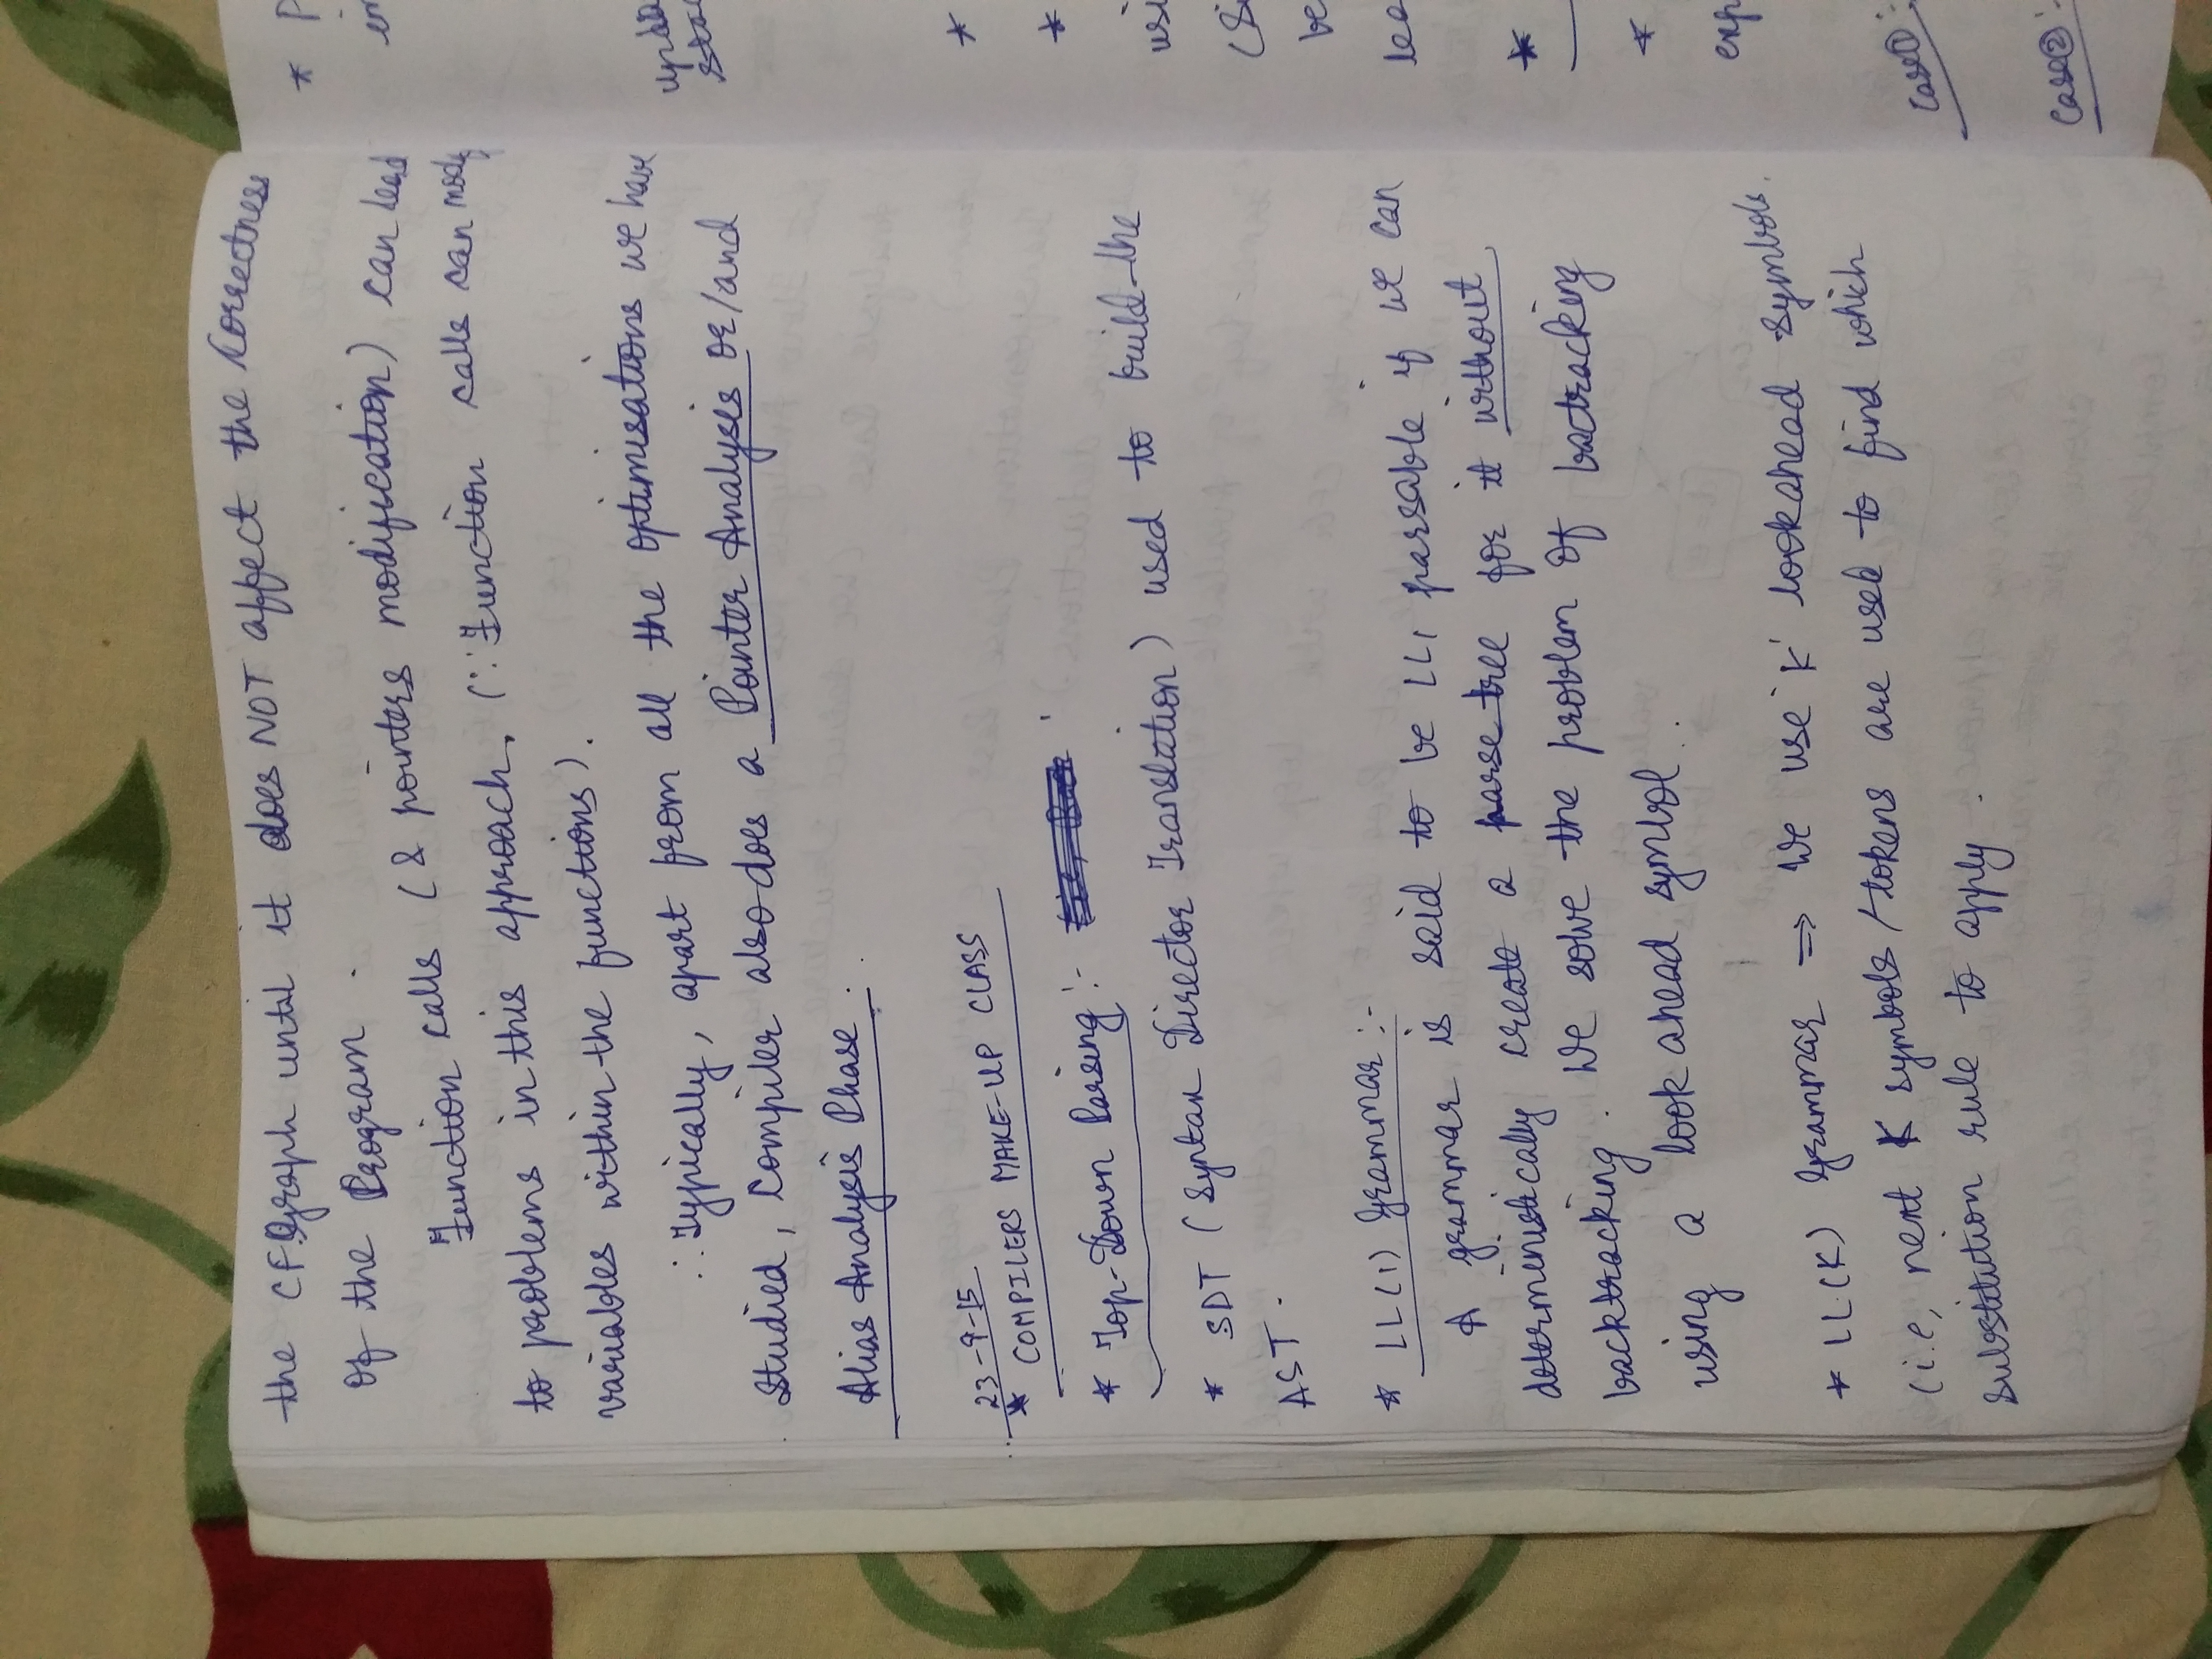 the CFGraph until it does NOT affect the Correctness
of the Program.
Function calls (& pointers modification) can lead
to problems in this approach. (∵ Function calls can modify
variables within the functions).
∴ Typically, apart from all the optimisations we have
studied, Compiler also does a Pointer Analysis or/and
Alias Analysis Phase.
23-9-15
* COMPILERS MAKE-UP CLASS
* Top-Down Parsing :-
* SDT (Syntax Director Translation) used to build the
AST.
* LL(1) Grammar :-
A grammar is said to be LL1 parsable if we can
deterministically create a parse tree for it without
backtracking. We solve the problem of bactracking
using a look ahead symbol.
* LL(K) Grammar ⇒ We use 'K' lookahead symbols.
(i.e, next K symbols/tokens are used to find which
substitution rule to apply.
*
*
*
usi
be
*
*
exp
Case①:
Case②:-